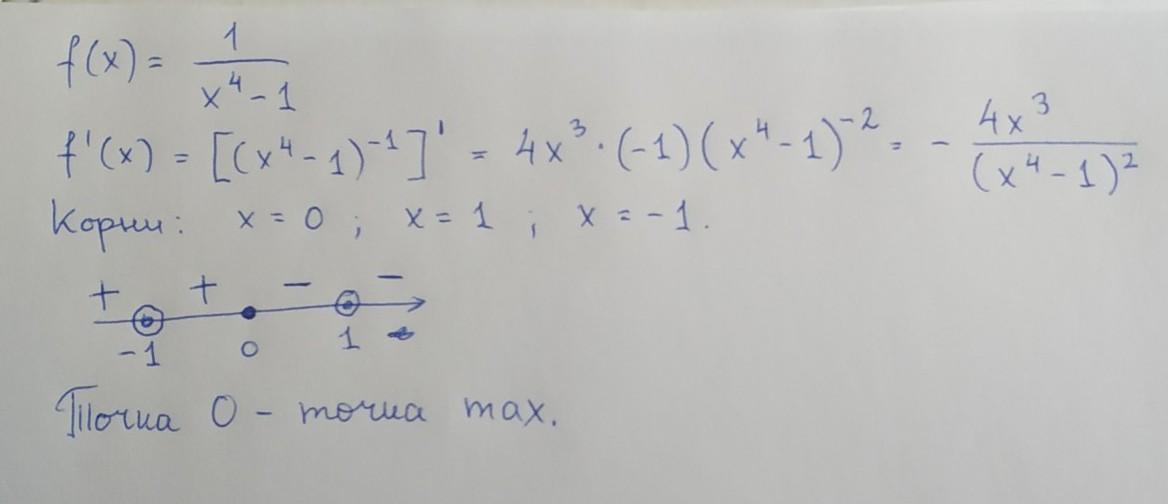 f(x) = 1/(x⁴ - 1)
f'(x) = [(x⁴ - 1)⁻¹]' = 4x³ · (-1)(x⁴ - 1)⁻² = - 4x³/(x⁴ - 1)²
Корни: x = 0 ; x = 1 ; x = -1.
+ + - -
-1 0 1
Точка 0 - точка max.